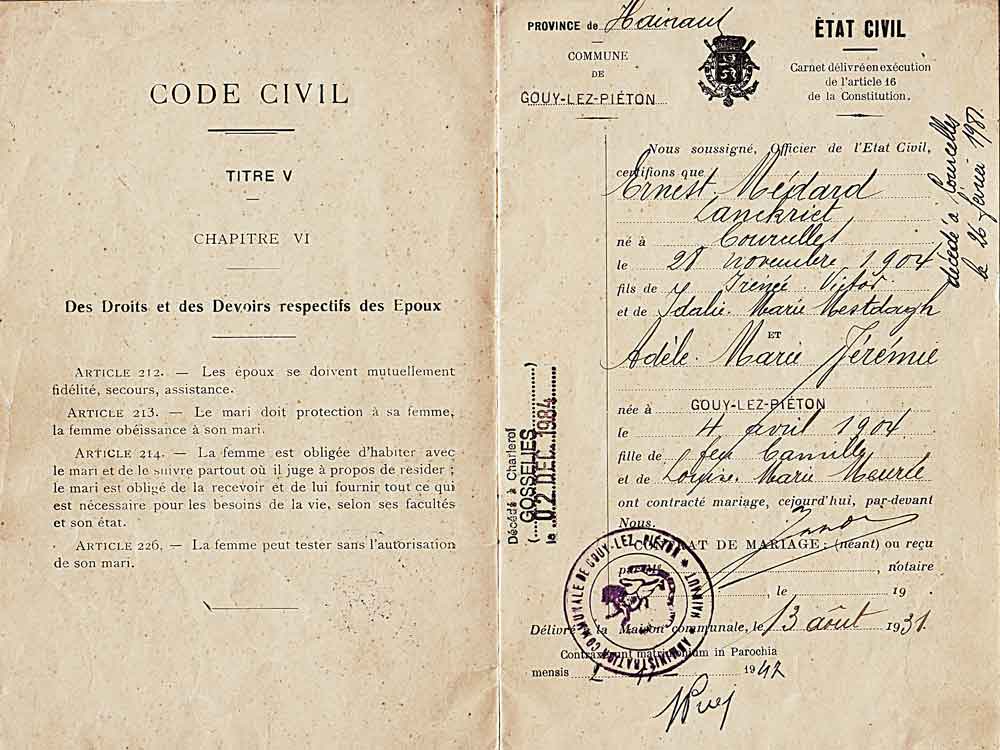 CODE CIVIL
TITRE V
CHAPITRE VI
Des Droits et des Devoirs respectifs des Epoux
ARTICLE 212. — Les époux se doivent mutuellement
fidélité, secours, assistance.
ARTICLE 213. — Le mari doit protection à sa femme,
la femme obéissance à son mari.
ARTICLE 214. — La femme est obligée d'habiter avec
le mari et de le suivre partout où il juge à propos de résider ;
le mari est obligé de la recevoir et de lui fournir tout ce qui
est nécessaire pour les besoins de la vie, selon ses facultés
et son état.
ARTICLE 226. — La femme peut tester sans l'autorisation
de son mari.
PROVINCE de Hainaut
COMMUNE
DE
GOUY-LEZ-PIÉTON
ÉTAT CIVIL
Carnet délivré en exécution
de l'article 16
de la Constitution.
décédé à Courcelles
le 26 février 1987.
Nous soussigné, Officier de l'Etat Civil,
certifions que
Ernest Médard
Lanckriet
né à Courcelles
le 28 novembre 1904
fils de Irénée Victor
et de Idalie Marie Mestdagh
ET
Adèle Marie Jérémie
née à GOUY-LEZ-PIÉTON
le 4 avril 1904
fille de feu Camille
et de Marie
ont contracté mariage, cejourd'hui, par-devant
Nous.
Décédé à Charleroi
(GOSSELIES)
le 02 DEC. 1984
CONTRAT DE MARIAGE : (néant) ou reçu
par Me , notaire
, le 19 .
Délivré à la Maison communale, le 13 août 1931.
ADMINISTRATION COMMUNALE DE GOUY-LEZ-PIÉTON * HAINAUT *
Contraxerunt matrimonium in Parochia
mensis 1942